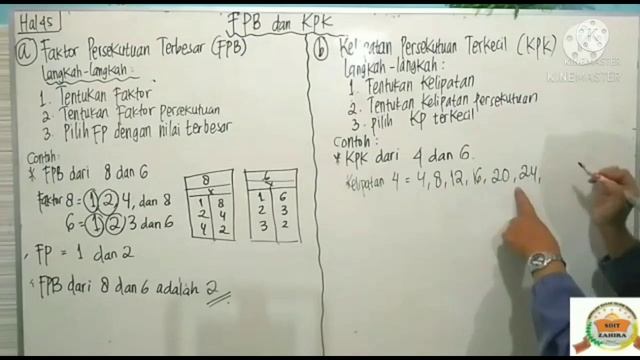 Hal 45
FPB dan KPK
a) Faktor Persekutuan Terbesar (FPB)
Langkah-langkah:
1. Tentukan Faktor
2. Tentukan Faktor Persekutuan
3. Pilih FP dengan nilai terbesar
Contoh:
* FPB dari 8 dan 6
Faktor 8 = 1, 2, 4, dan 8
6 = 1, 2, 3 dan 6
8
x
1 8
2 4
4 2
6
x
1 6
2 3
3 2
FP = 1 dan 2
FPB dari 8 dan 6 adalah 2
b) Kelipatan Persekutuan Terkecil (KPK)
Langkah-langkah:
1. Tentukan Kelipatan
2. Tentukan Kelipatan persekutuan
3. Pilih KP terkecil
Contoh:
* KPK dari 4 dan 6.
Kelipatan 4 = 4, 8, 12, 16, 20, 24,
Made with
KINEMASTER
SDIT
ZAHIRA